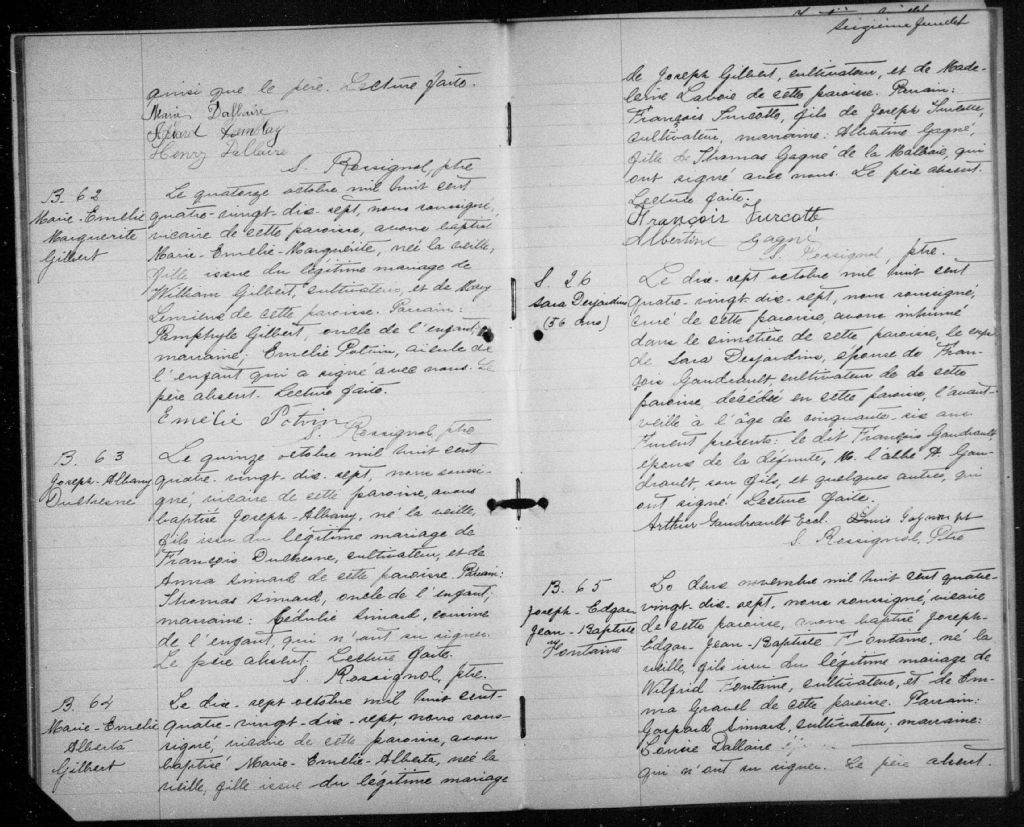 ainsi que le père. Lecture faite.
Marie Dallaire
Henry Dallaire
S. Rossignol, ptre
B. 62
Marie-Emélie
Marguerite
Gilbert
Le quatorze octobre mil huit cent
quatre-vingt-dix-sept, nous soussigné,
vicaire de cette paroisse, avons baptisé
Marie-Emélie-Marguerite, née la veille,
fille issue du légitime mariage de
William Gilbert, cultivateur, et de Mary
Lemieux de cette paroisse. Parrain:
Pamphyle Gilbert, oncle de l'enfant;
marraine; Emélie Potvin, aieule de
l'enfant qui a signé avec nous. Le
père absent. Lecture faite.
Emélie Potvin
S. Rossignol, ptre
B. 63
Joseph-Albany
Duchesne
Le quinze octobre mil huit cent
quatre-vingt-dix-sept, nous soussi-
gné, vicaire de cette paroisse, avons
baptisé Joseph-Albany, né la veille,
fils issu du légitime mariage de
François Duchesne, cultivateur, et de
Anna Simard de cette paroisse. Parrain:
Thomas Simard, oncle de l'enfant;
marraine: Cédulie Simard, cousine
de l'enfant, qui n'ont su signer.
Le père absent. Lecture faite.
S. Rossignol, ptre.
B. 64
Marie-Emélie
Alberta
Gilbert
Le dix-sept octobre mil huit cent-
quatre-vingt-dix-sept, nous sous-
signé, vicaire de cette paroisse, avons
baptisé Marie-Emélie-Alberta, née la
veille, fille issue du légitime mariage
Sixième feuillet
de Joseph Gilbert, cultivateur, et de Made-
leine Lavoie de cette paroisse. Parrain:
François Turcotte, fils de Joseph Turcotte,
cultivateur, marraine: Albertine Gagné,
fille de Thomas Gagné de la Malbaie, qui
ont signé avec nous. Le père absent.
Lecture faite.
François Turcotte
Albertine Gagné
S. Rossignol, ptre.
S. 26
Sara Desjardins
(56 ans)
Le dix-sept octobre mil huit cent
quatre-vingt-dix-sept, nous soussigné,
curé de cette paroisse, avons inhumé
dans le cimetière de cette paroisse, le corps
de Sara Desjardins, épouse de Fran-
çois Gaudreault, cultivateur de de cette
paroisse, décédée en cette paroisse, l'avant-
veille à l'âge de cinquante-six ans.
Furent présents: le dit François Gaudreault
époux de la défunte, M. l'abbé A. Gau-
dreault, son fils, et quelques autres, qui
ont signé. Lecture faite.
Arthur Gaudreault Eccl. Louis Gagnon pt
S. Rossignol, Ptre
B. 65
Joseph-Edgar
Jean-Baptiste
Fontaine
Le deux novembre mil huit cent quatre-
vingt-dix-sept, nous soussigné, vicaire
de cette paroisse, avons baptisé Joseph-
Edgar-Jean-Baptiste Fontaine, né la
veille, fils issu du légitime mariage de
Wilfrid Fontaine, cultivateur, et de Em-
ma Gravel de cette paroisse. Parrain:
Gaspard Simard, cultivateur; marraine:
Louise Dallaire
qui n'ont su signer. Le père absent.